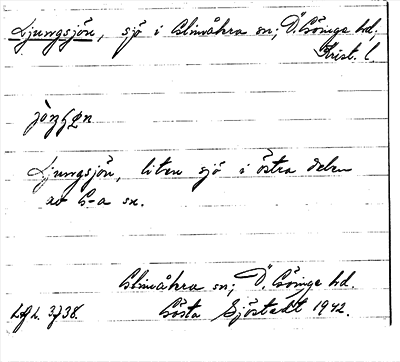 Ljungsjön, sjö i Glimåkra sn; Ö. Göinge hd.;
Krist. l.
Ljungsjön, liten sjö i östra delen
av G-a sn.
Glimåkra sn; Ö. Göinge hd.
Gösta Sjöstedt 1942.